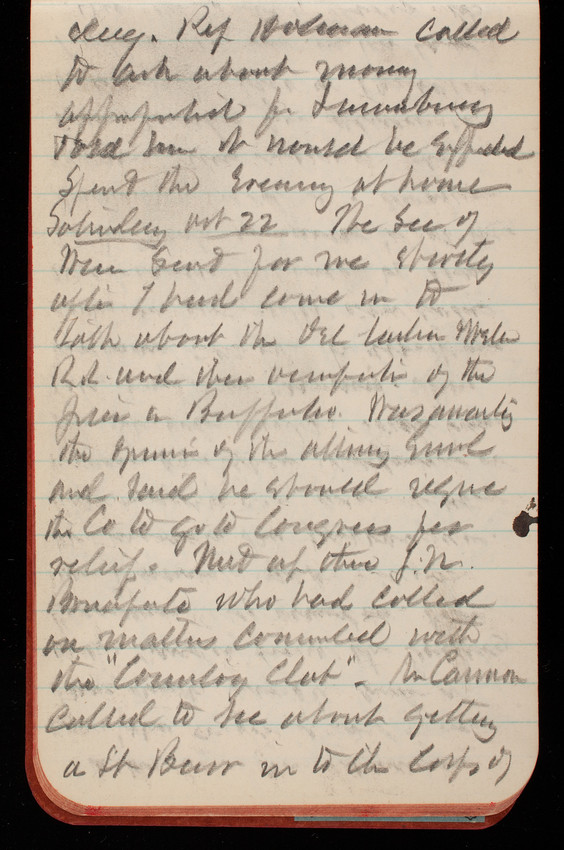 Aug. Rep Holman called
to ask about money
appropriated for
Told him it would be Expended
Spent the Evening at home
Saturday Oct 22 The Sec of
War Sent for me shortly
after I had come in to
talk about the Del Water
R.R. and their occupation of the
pier in Buffalo. Was awaiting
the opinion of the attorney Genl
and said he should require
the Co to go to Congress for
relief. Met up there J.N.
Bonaparte who had called
on matters connected with
the "Country Club". Mr Cannon
called to see about getting
a St Burr in to the Corps of